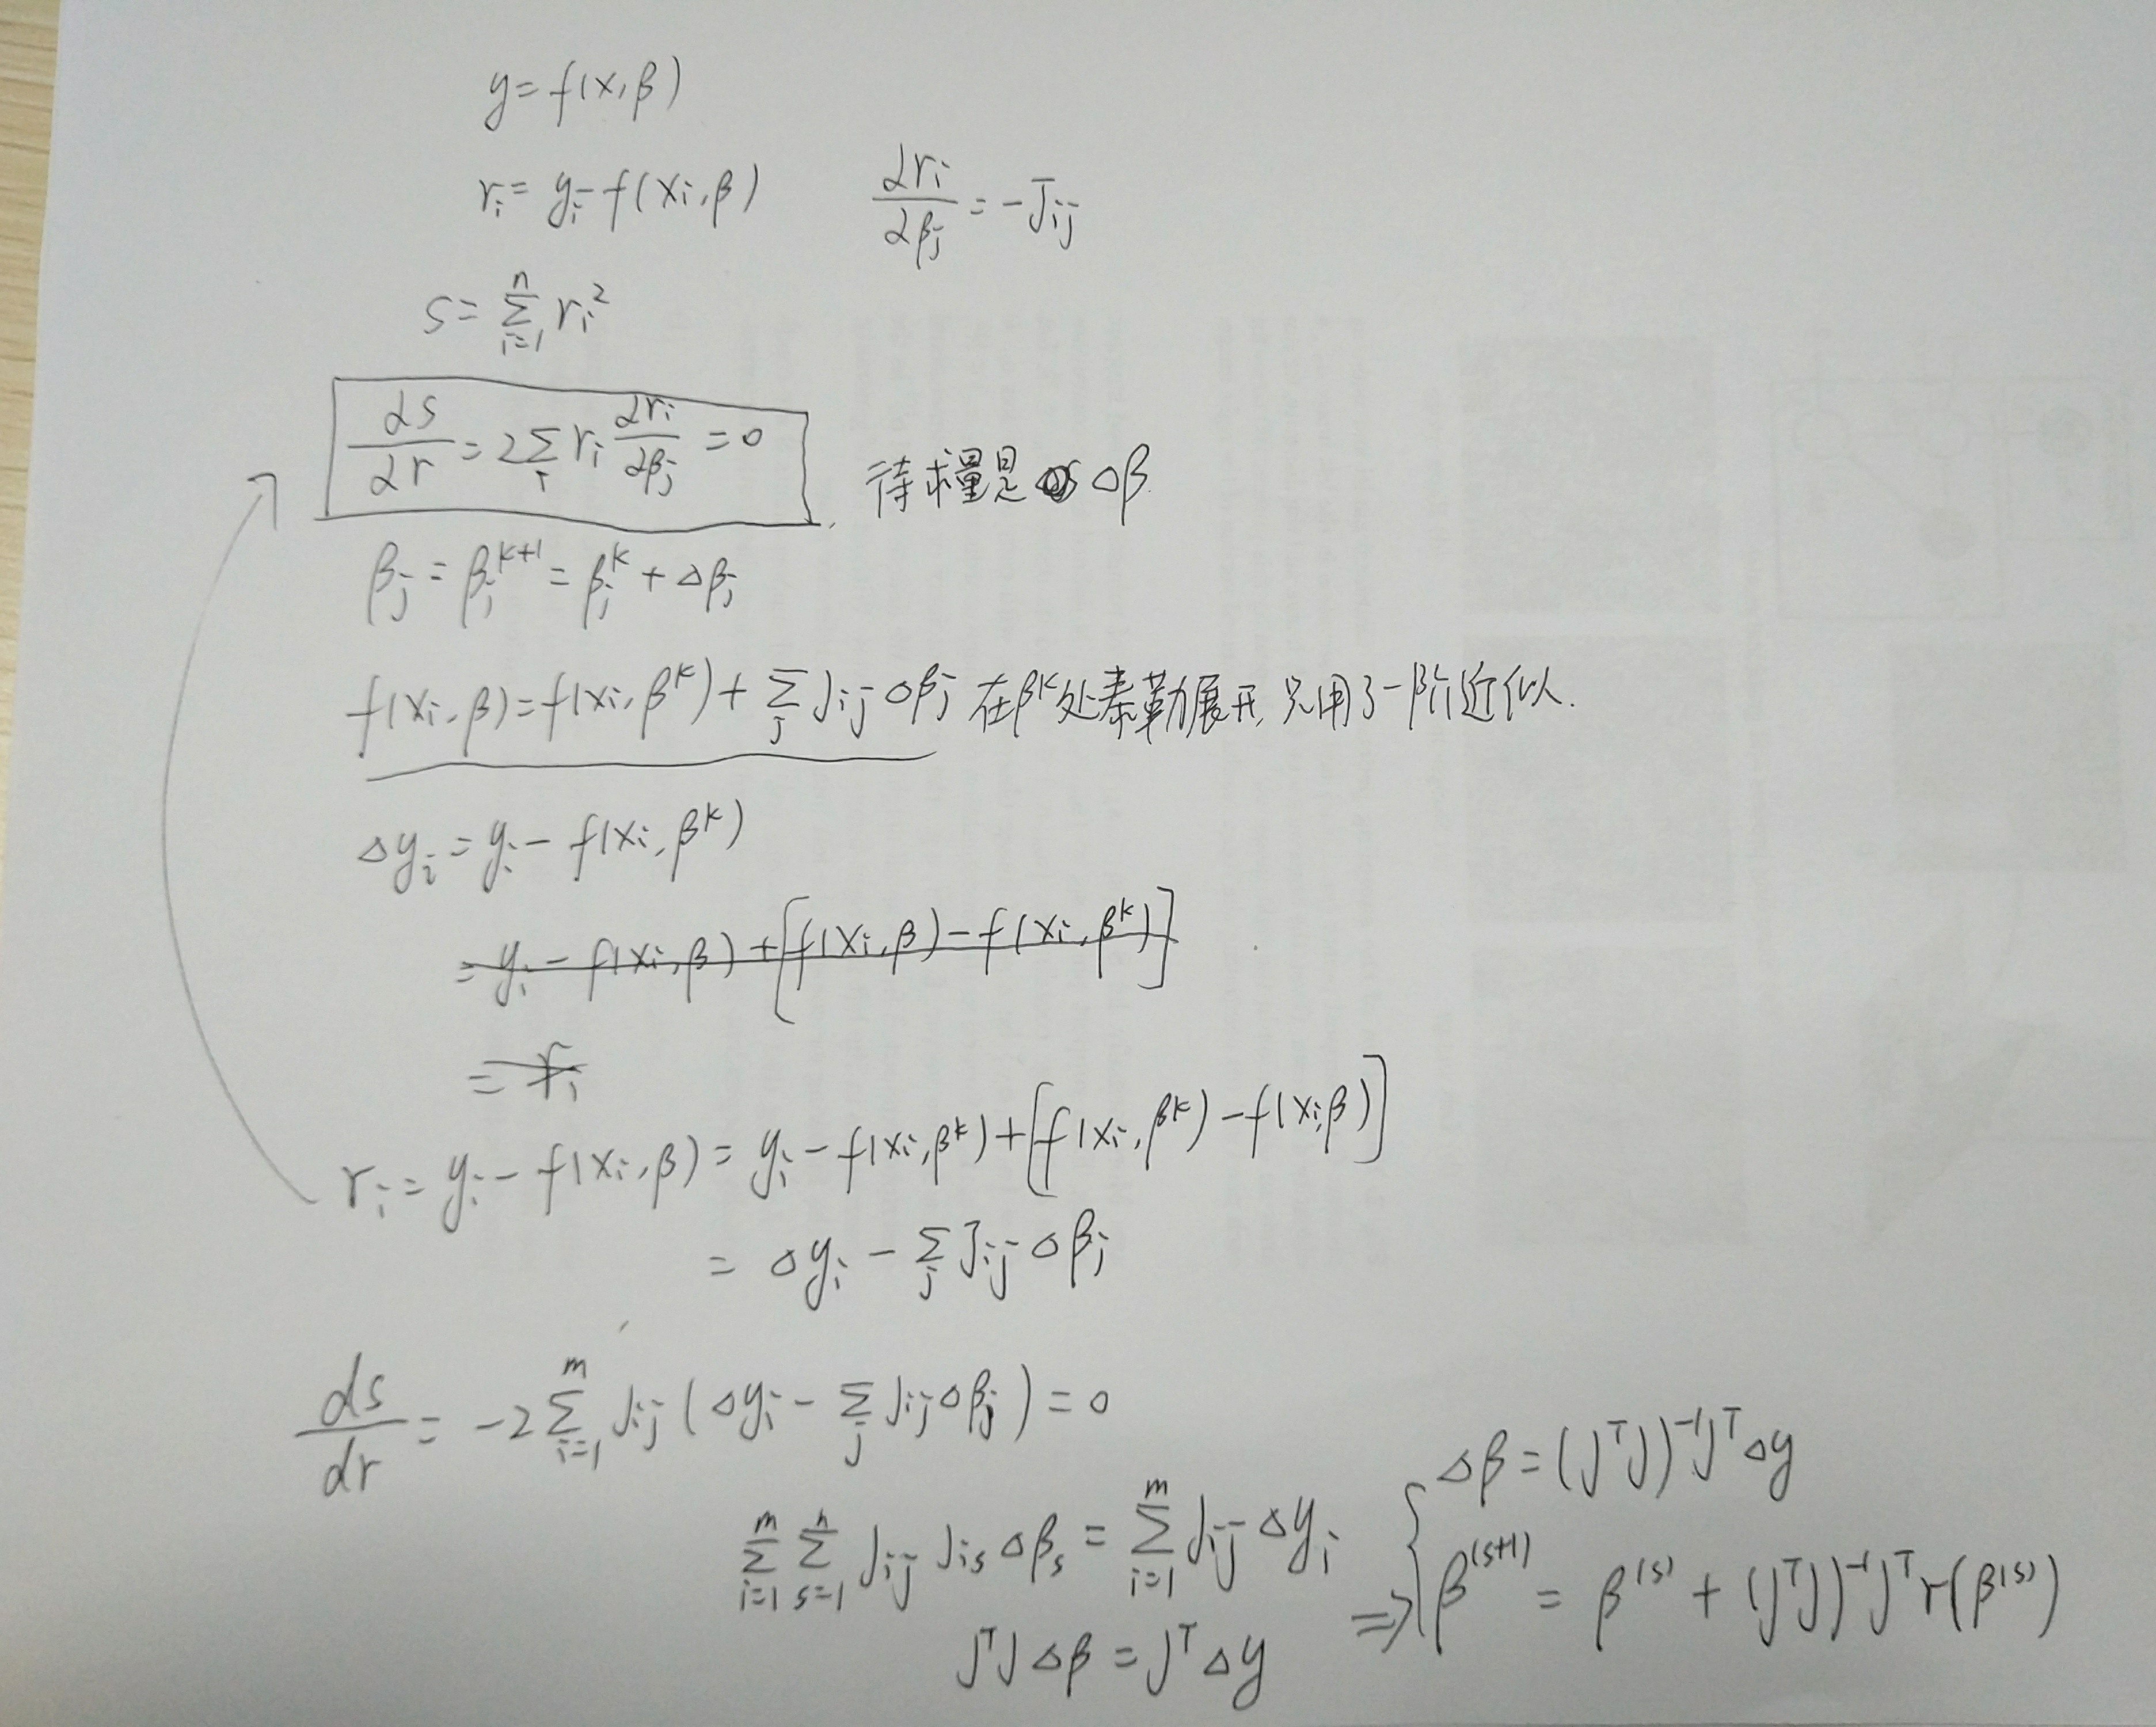 y = f(x, β)
rᵢ = yᵢ - f(xᵢ, β)    ∂rᵢ/∂βⱼ = -Jᵢⱼ
s = ∑ᵢ₌₁ⁿ rᵢ²
∂s/∂r = 2∑ᵢ rᵢ ∂rᵢ/∂βⱼ = 0    待求量是 Δβ.
βⱼ = βⱼᵏ⁺¹ = βⱼᵏ + Δβⱼ
f(xᵢ, β) = f(xᵢ, βᵏ) + ∑ⱼ Jᵢⱼ Δβⱼ 在βᵏ处泰勒展开,只用了一阶近似.
Δyᵢ = yᵢ - f(xᵢ, βᵏ)
= yᵢ - f(xᵢ, β) + [f(xᵢ, β) - f(xᵢ, βᵏ)]
= rᵢ
rᵢ = yᵢ - f(xᵢ, β) = yᵢ - f(xᵢ, βᵏ) + [f(xᵢ, βᵏ) - f(xᵢ, β)]
= Δyᵢ - ∑ⱼ Jᵢⱼ Δβⱼ
ds/dr = -2 ∑ᵢ₌₁ᵐ Jᵢⱼ (Δyᵢ - ∑ⱼ Jᵢⱼ Δβⱼ) = 0
∑ᵢ₌₁ᵐ ∑ₛ₌₁ⁿ Jᵢⱼ Jᵢₛ Δβₛ = ∑ᵢ₌₁ᵐ Jᵢⱼ Δyᵢ
JᵀJ Δβ = Jᵀ Δy
⇒ { Δβ = (JᵀJ)⁻¹Jᵀ Δy
β⁽ˢ⁺¹⁾ = β⁽ˢ⁾ + (JᵀJ)⁻¹Jᵀ r(β⁽ˢ⁾)